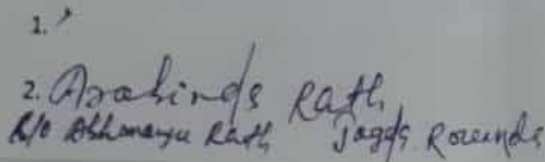 1.
2. Arabinda Rath
S/o Abhimanyu Rath Jagda Rourkela